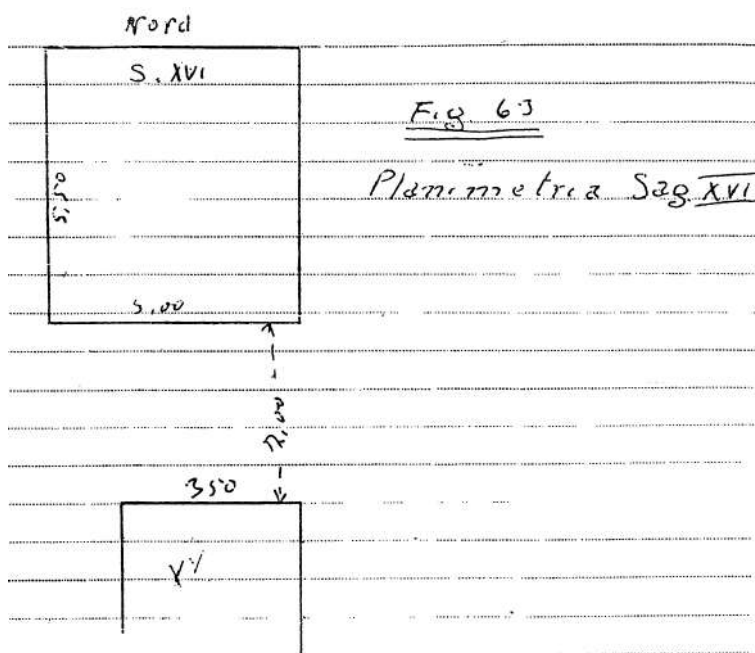 Nord
S. XVI
Fig. 63
Planimetria Sag. XVI
5.50
5.00
350
XV